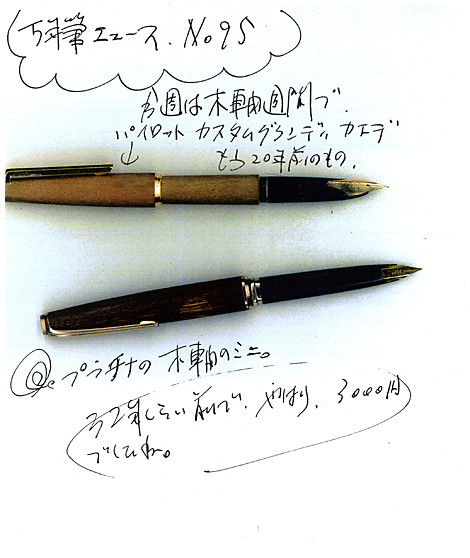 万年筆ニュース. No95
今週は木軸週間で.
パイロット カスタムグランディ カエデ
もう20年前のもの.
プラチナの 木軸のミニ。
年くらい前で. やはり. 3000円
でしたね。